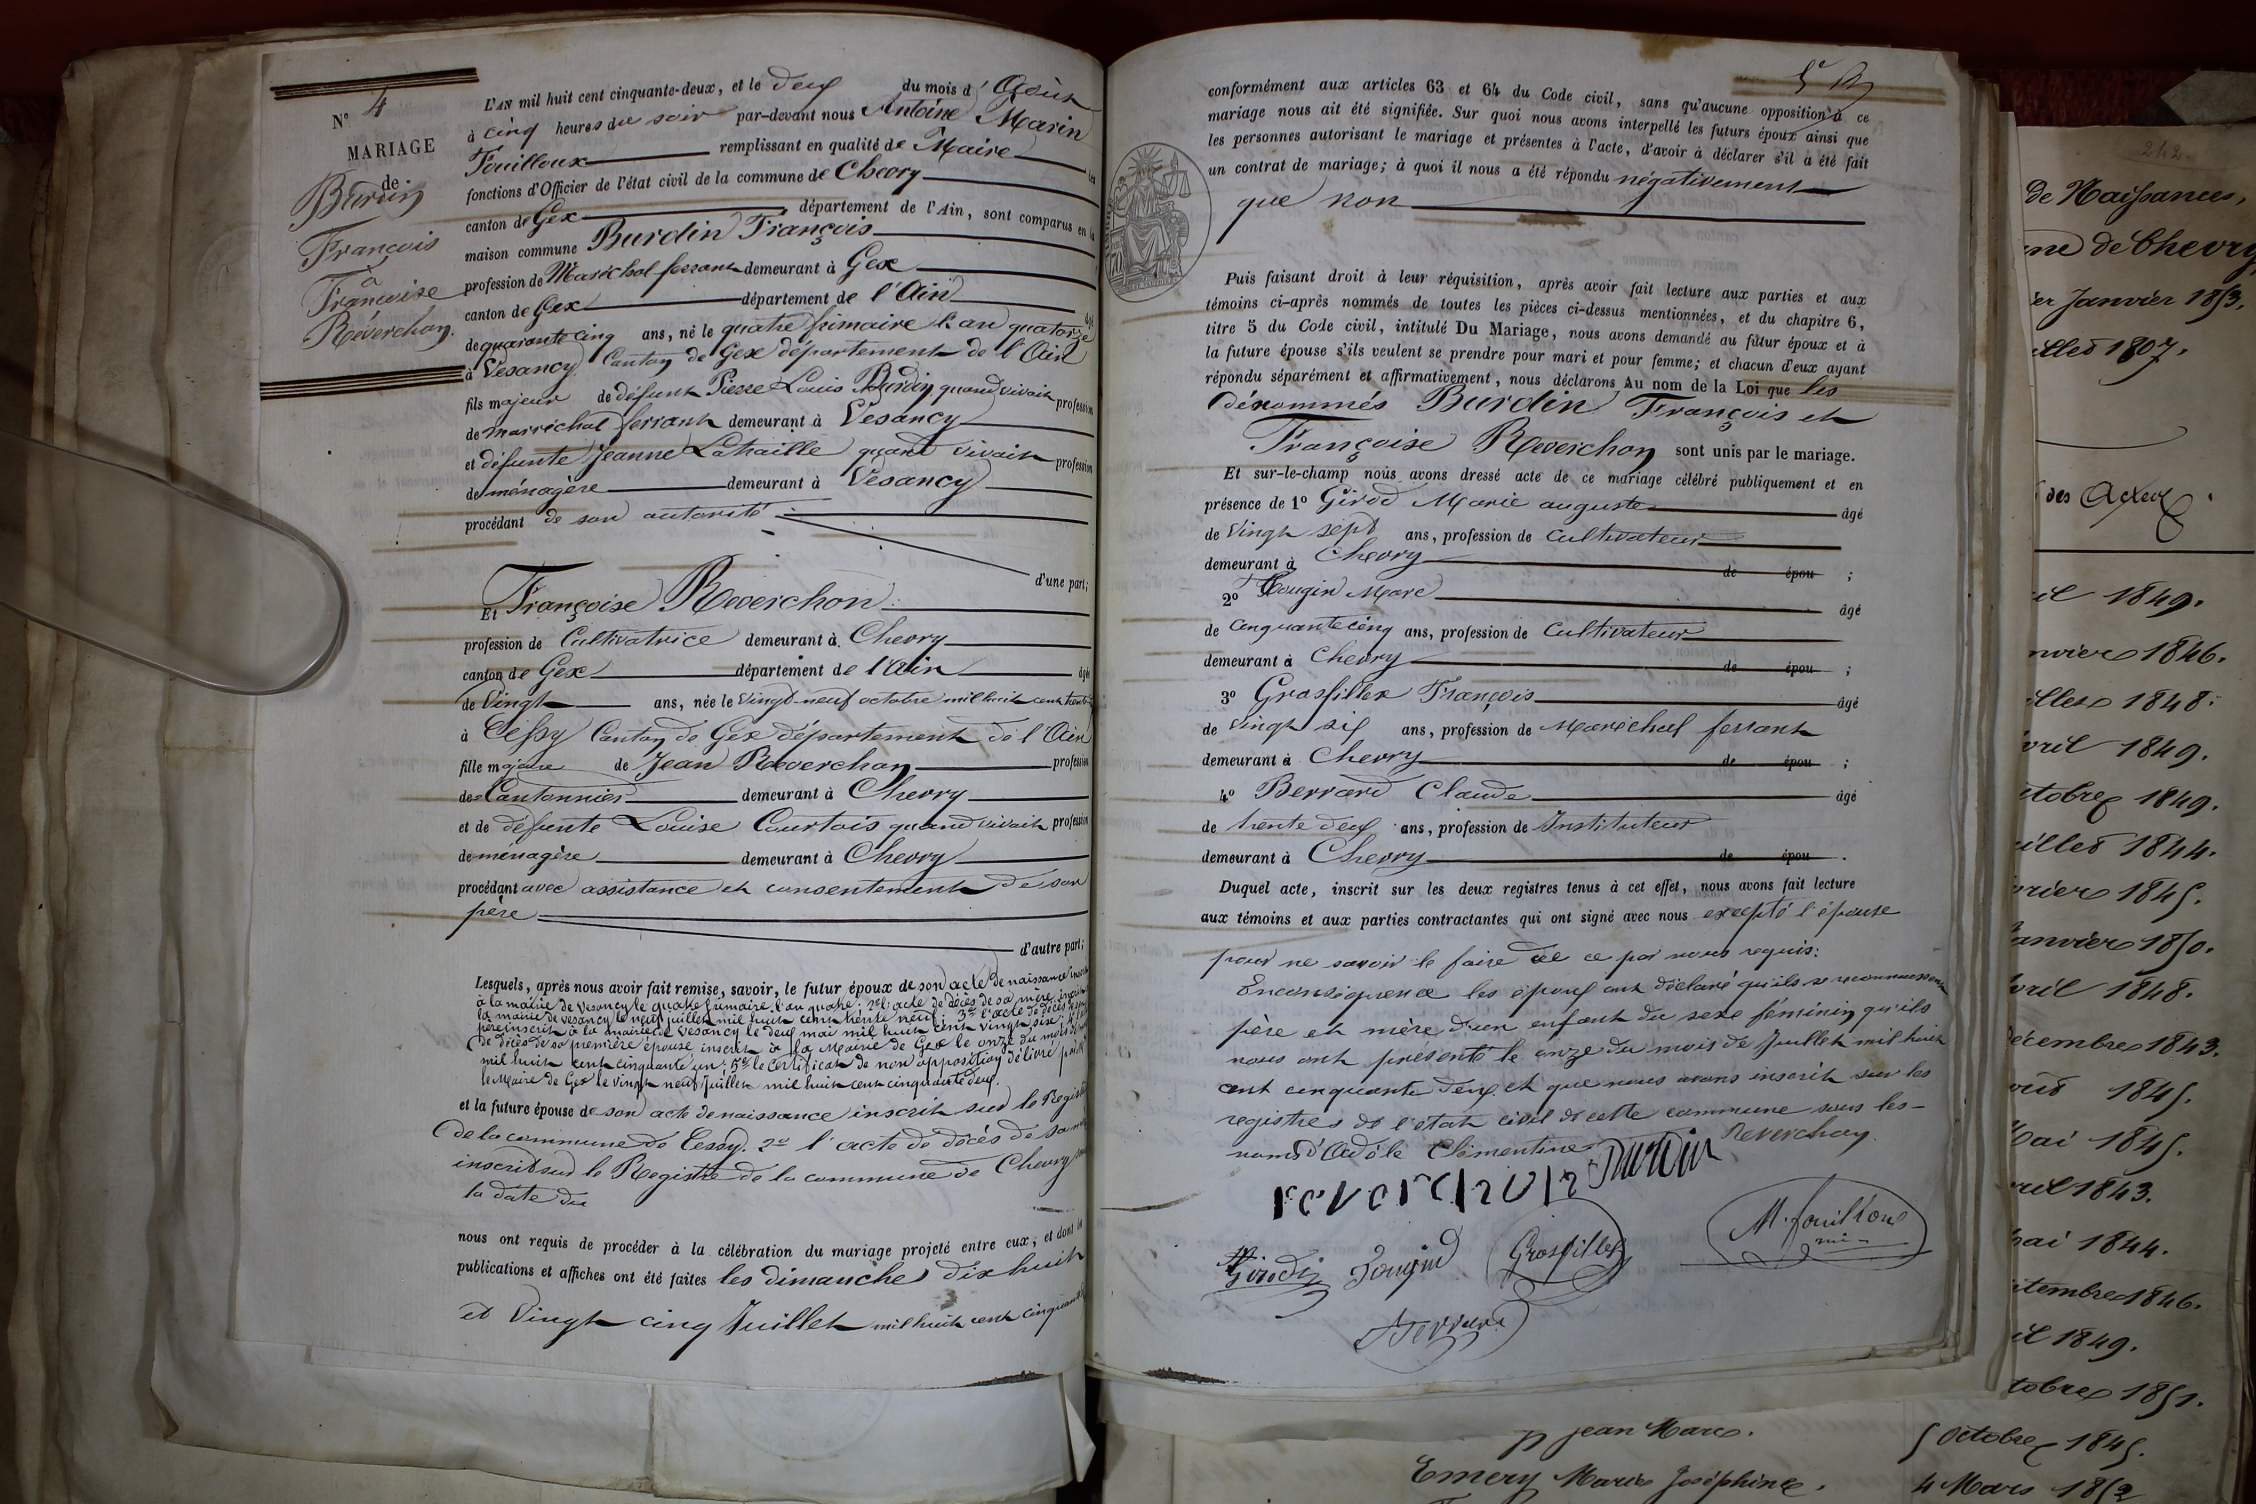 N° 4
MARIAGE
de
Burdin
François
à
Françoise
Réverchon.
L'AN mil huit cent cinquante-deux, et le deux du mois d'Août
à cinq heures du soir par-devant nous Antoine Marin
Fouilloux remplissant en qualité de Maire les
fonctions d'Officier de l'état civil de la commune de Chevry
canton de Gex département de l'Ain, sont comparus en la
maison commune Burdin François
profession de Maréchal ferrant demeurant à Gex
canton de Gex département de l'Ain âgé
de quarante cinq ans, né le quatre frimaire l'an quatorze
à Vesancy Canton de Gex département de l'Ain
fils majeur de défunt Pierre Louis Burdin quand vivait profession
de marréchal ferrant demeurant à Vesancy
et défunte Jeanne Lahaille quand vivait profession
de ménagère demeurant à Vesancy
procédant de son autorité
d'une part;
Et Françoise Reverchon
profession de Cultivatrice demeurant à Chevry
canton de Gex département de l'Ain âgée
de Vingt ans, née le Vingt-neuf octobre mil huit cent trente
à Cessy Canton de Gex département de l'Ain
fille majeure de Jean Reverchon profession
de Cantonnier demeurant à Chevry
et de défunte Louise Courtois quand vivait profession
de ménagère demeurant à Chevry
procédant avec assistance et consentement de son
père
d'autre part;
Lesquels, après nous avoir fait remise, savoir, le futur époux de son acte de naissance inscrit
à la mairie de Vesancy le quatre frimaire l'an quatre. 2° l'acte de décès de sa mère inscrit
la mairie de Vesancy le neuf juillet mil huit cent trente neuf. 3° l'acte de décès de son
père inscrit à la mairie de Vesancy le deux mai mil huit cent vingt six.
de décès de sa première épouse inscrit à la Mairie de Gex le onze du mois
mil huit cent cinquante un. 5° le Certificat de non opposition délivré par
le Maire de Gex le vingt neuf Juillet mil huit cent cinquante deux.
et la future épouse de son acte de naissance inscrit sur le Registre
de la commune de Cessy. 2° l'acte de décès de sa
inscrit sur le Registre de la commune de Chevry
la date du
nous ont requis de procéder à la célébration du mariage projeté entre eux, et dont les
publications et affiches ont été faites les dimanches dix huit
et Vingt cinq Juillet mil huit cent cinquante
conformément aux articles 63 et 64 du Code civil, sans qu'aucune opposition à ce
mariage nous ait été signifiée. Sur quoi nous avons interpellé les futurs époux ainsi que
les personnes autorisant le mariage et présentes à l'acte, d'avoir à déclarer s'il a été fait
un contrat de mariage; à quoi il nous a été répondu négativement
que non
Puis faisant droit à leur réquisition, après avoir fait lecture aux parties et aux
témoins ci-après nommés de toutes les pièces ci-dessus mentionnées, et du chapitre 6,
titre 5 du Code civil, intitulé Du Mariage, nous avons demandé au futur époux et à
la future épouse s'ils veulent se prendre pour mari et pour femme; et chacun d'eux ayant
répondu séparément et affirmativement, nous déclarons Au nom de la Loi que les
dénommés Burdin François et
Françoise Reverchon sont unis par le mariage.
Et sur-le-champ nous avons dressé acte de ce mariage célébré publiquement et en
présence de 1° Girod Marie auguste âgé
de Vingt sept ans, profession de Cultivateur
demeurant à Chevry de épou ;
2° Tougin Marc âgé
de Cinquante cinq ans, profession de Cultivateur
demeurant à Chevry de épou ;
3° Grosfillex François âgé
de Vingt six ans, profession de Maréchal ferrant
demeurant à Chevry de épou ;
4° Berrard Claude âgé
de trente deux ans, profession de Instituteur
demeurant à Chevry de épou .
Duquel acte, inscrit sur les deux registres tenus à cet effet, nous avons fait lecture
aux témoins et aux parties contractantes qui ont signé avec nous excepté l'épouse
pour ne savoir le faire de ce par nous requis.
En conséquence les époux ont déclaré qu'ils se reconnaissent
père et mère d'un enfant du sexe féminin qu'ils
nous ont présenté le onze du mois de Juillet mil huit
cent cinquante deux et que nous avons inscrit sur les
registres de l'état civil de cette commune sous les
noms d'Adèle Clémentine Reverchon.
reverchon Burdin
Girod Tougin Grosfillex M. fouilloux
Berrard
242
de Naissances,
ne de Chevry
er Janvier 1853,
1807.
des Actes
1849.
nvier 1846.
1848.
vril 1849.
ctobre 1849.
uillet 1844.
vrier 1845.
Janvier 1850.
vril 1848.
écembre 1843.
1845.
Mai 1845.
1843.
mai 1844.
ptembre 1846.
1849.
tobre 1851.
jean Marc. 5 Octobre 1845.
Emery Marie Joséphine. 4 Mars 1852